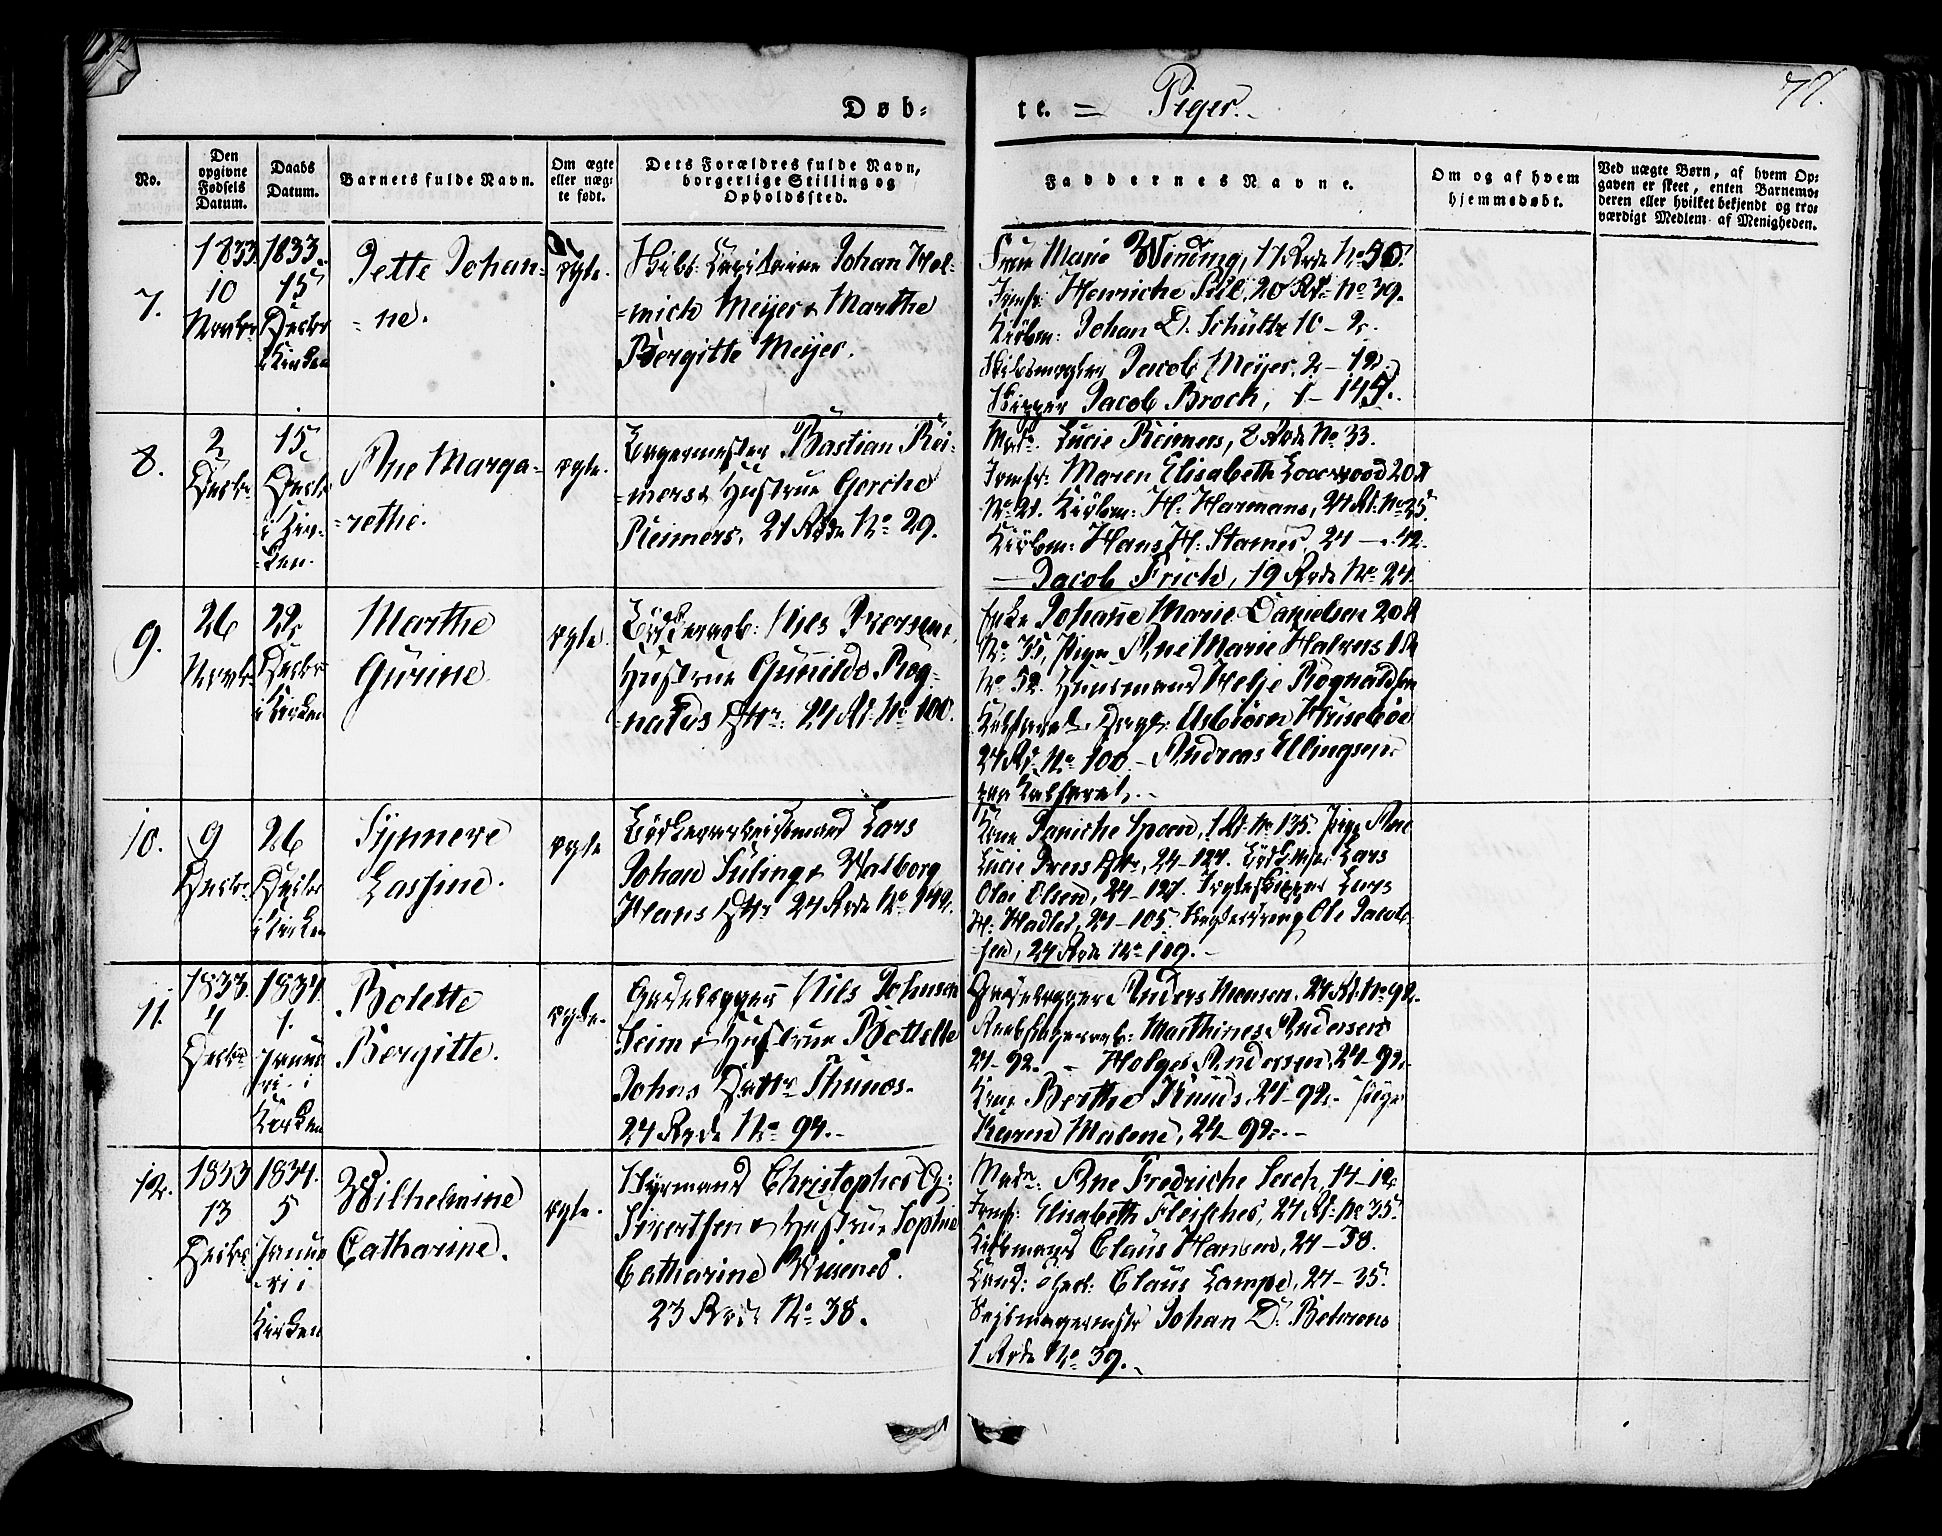 Døb-
te. = Piger.
77.
No.
Den opgivne Fødsels Datum.
Daabs Datum.
Barnets fulde Navn.
Om ægte eller uæg-te født.
Dets Forældres fulde Navn, borgerlige Stilling og Opholdssted.
Faddernes Navne.
Om og af hvem hjemmedøbt.
Ved uægte Børn, af hvem Op-gaven er skeet, enten Barnemo-deren eller hvilket bekjendt og tro-værdigt Medlem af Menigheden.
7.
1833
10
Novbr
1833.
15
Decbr
i Kirken
Jette Johan-
= ne.
ægte.
Skibs Capitaine Johan Hel-
=mich Meijer & Marthe
Bergitte Meijer.
Frue Marie Winding, 17 Rode No 50.
Jomfr: Henriche Piil, 20 Rd No 39.
Kiøbm: Johan D. Schultz 10 – 2.
Skibsmægler Jacob Meijer, 2 – 12.
Skipper Jacob Broch, 1 – 145.
8.
2
Decbr
15
Decbr
i Kir-
=ken.
Ane Marga-
=rethe.
ægte.
Bagermester Bastian Rei-
=mers & Hustrue Gerche
Reimers. 21 Rode No 29.
Mad: Lucie Reimers, 8 Rode No 33.
Jomfr: Maren Elisabeth 20 R
No 21. Kiøbm: H: Harmens, 21 Rd: No 25.
Kiøbm: Hans H: Stamer 24 – 42.
— Jacob Frich, 19 Rode No 24
9.
26
Novbr
22
Decbr
i Kirken
Marthe
Gurine
ægte.
Nils Iversen,
Hustrue Gunilde Rog-
=nalds Dttr: 24 Rd: No 100.
Enke Johane Marie Danielsen 20 R
No 35, Pige Ane Marie Halvers 1 R
No 52. Huusmand Helje Rognaldsen
24 Rd: No 100. – Andreas Ellingsen
10.
9
Decbr
26
Decbr
i Kirken
Synneve
Lassine.
ægte
Bødkerarbeidsmand Lars
Johan Süling & Walborg
Hans Dttr 24 Rode No 149.
Kone Daniche Spoen, 1 Rd: No 135. Pige Ane
Lucie Ivers Dttr, 24 – 127. Lars
Olai Olsen, 24 – 127. Jagteskipper Lars
H: Hadler, 24 – 105. Ole Jacob-
=sen, 24 Rode No 109. –
11.
1833.
4
Decbr
1834.
1.
Janua
ri i
Kirken
Bolette
Bergitte.
ægte.
Gaardbygger Nils Johnsen
Seim & Hustrue Bothilde
Johns Dattr Thunes.
24 Rode No 94. –
Anders Monsen, 24 Rd: No 92.
Marthines Andersen
24 – 92. – Holger Andersen, 24 – 92.
Kone Berthe Knuds, 24 – 92. – Pige
Karen Malene, 24 – 92. –
12.
1833
13
Decbr
1834.
5
Janua
=ri i
Kirken
Wilhelmine
Catharine.
ægte.
Styrmand Christopher G:
Sivertsen & Hustrue Sophie
Catharine
23 Rode No 38.
Mad: Ane Fredriche Lerch, 14 – 12
Jomfr: Elisabeth Fleischer, 24 Rd: No 35.
Kiøbmand Claus Hansen, 24 – 38.
Cand: theol: Claus Lampe, 24 – 35.
Seilmagermstr Johan D. Behrens
1 Rode No 39. –